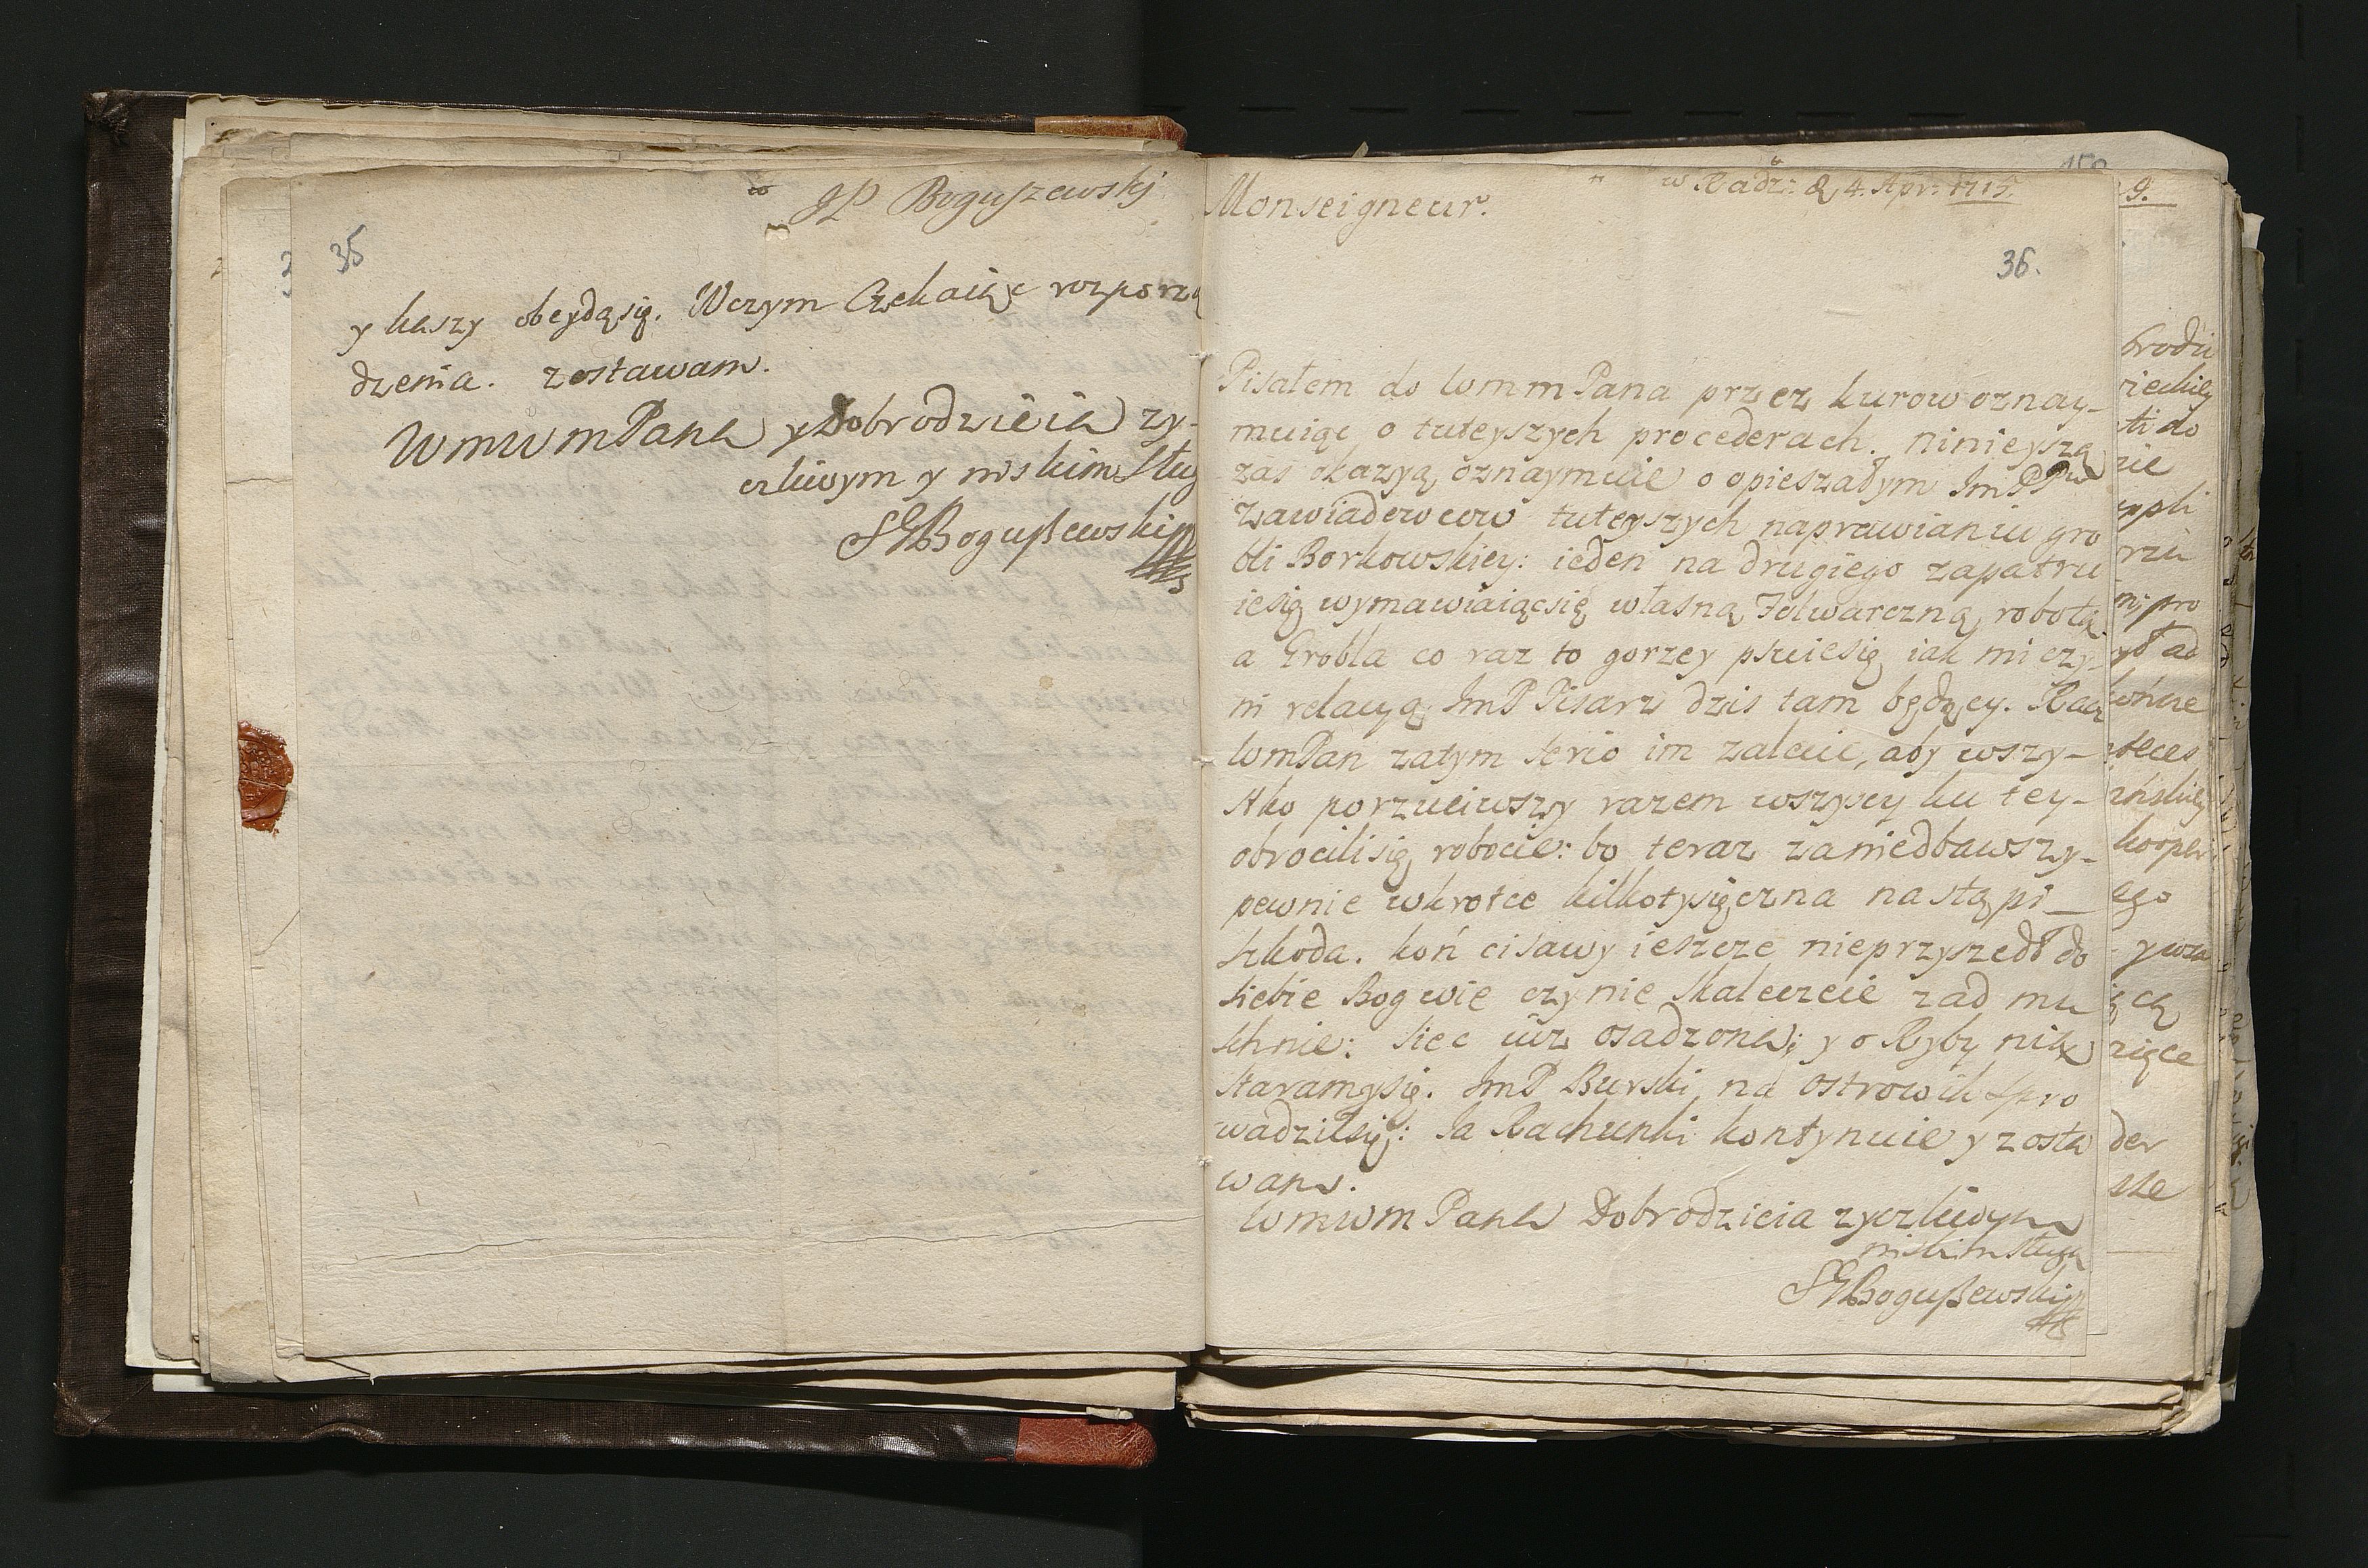 JP Boguszewskj
35
y kaszy obeydąsię. Wczym Czekaiąc rozporzą
dzenia. zostawam.
WmWmPana y Dobrodzieia zy-
czliwym y niskim Sług
SGBogußewski
w Radz: d 4. Apr: 1715.
Monseigneur.
36.
Pisałem do Wmm Pana przez kurow oznay-
muiąc o tuteyszych procederach. ninieyszą
zas okazyą oznaymuie o opieszałym ImPP
Zawiadowcow tuteyszych naprawianiu gro
bli Borkowskiey: ieden na drugiego zapatru
iesię wymawiaiącsię własną Folwarczną robotą
a Grobla co raz to gorzey psuiesię iak mi czy-
ni relacyą ImP Pisarz dzis tam będący. Racz
WmPan zatym serio im zalecic, aby wszy-
stko porzuciwszy razem wszyscy ku tey-
obrocilisię robocie: bo teraz zaniedbawszy-
pewnie wkrotce kilkotysięczna nastąpi
szkoda. koń cisawy ieszcze nieprzyszedł do
siebie Bog wie czy nie skaleczeie zad mu
schnie: siec iuz osadzona; y o Ryby
staramysię. ImP Burski na ostrowik spro
wadziłsię: Ia Rachunki kontynuie y zosta
wam.
WmWm Pana Dobrodzieia zyczliwym
niskim sługą
SGBogußewski